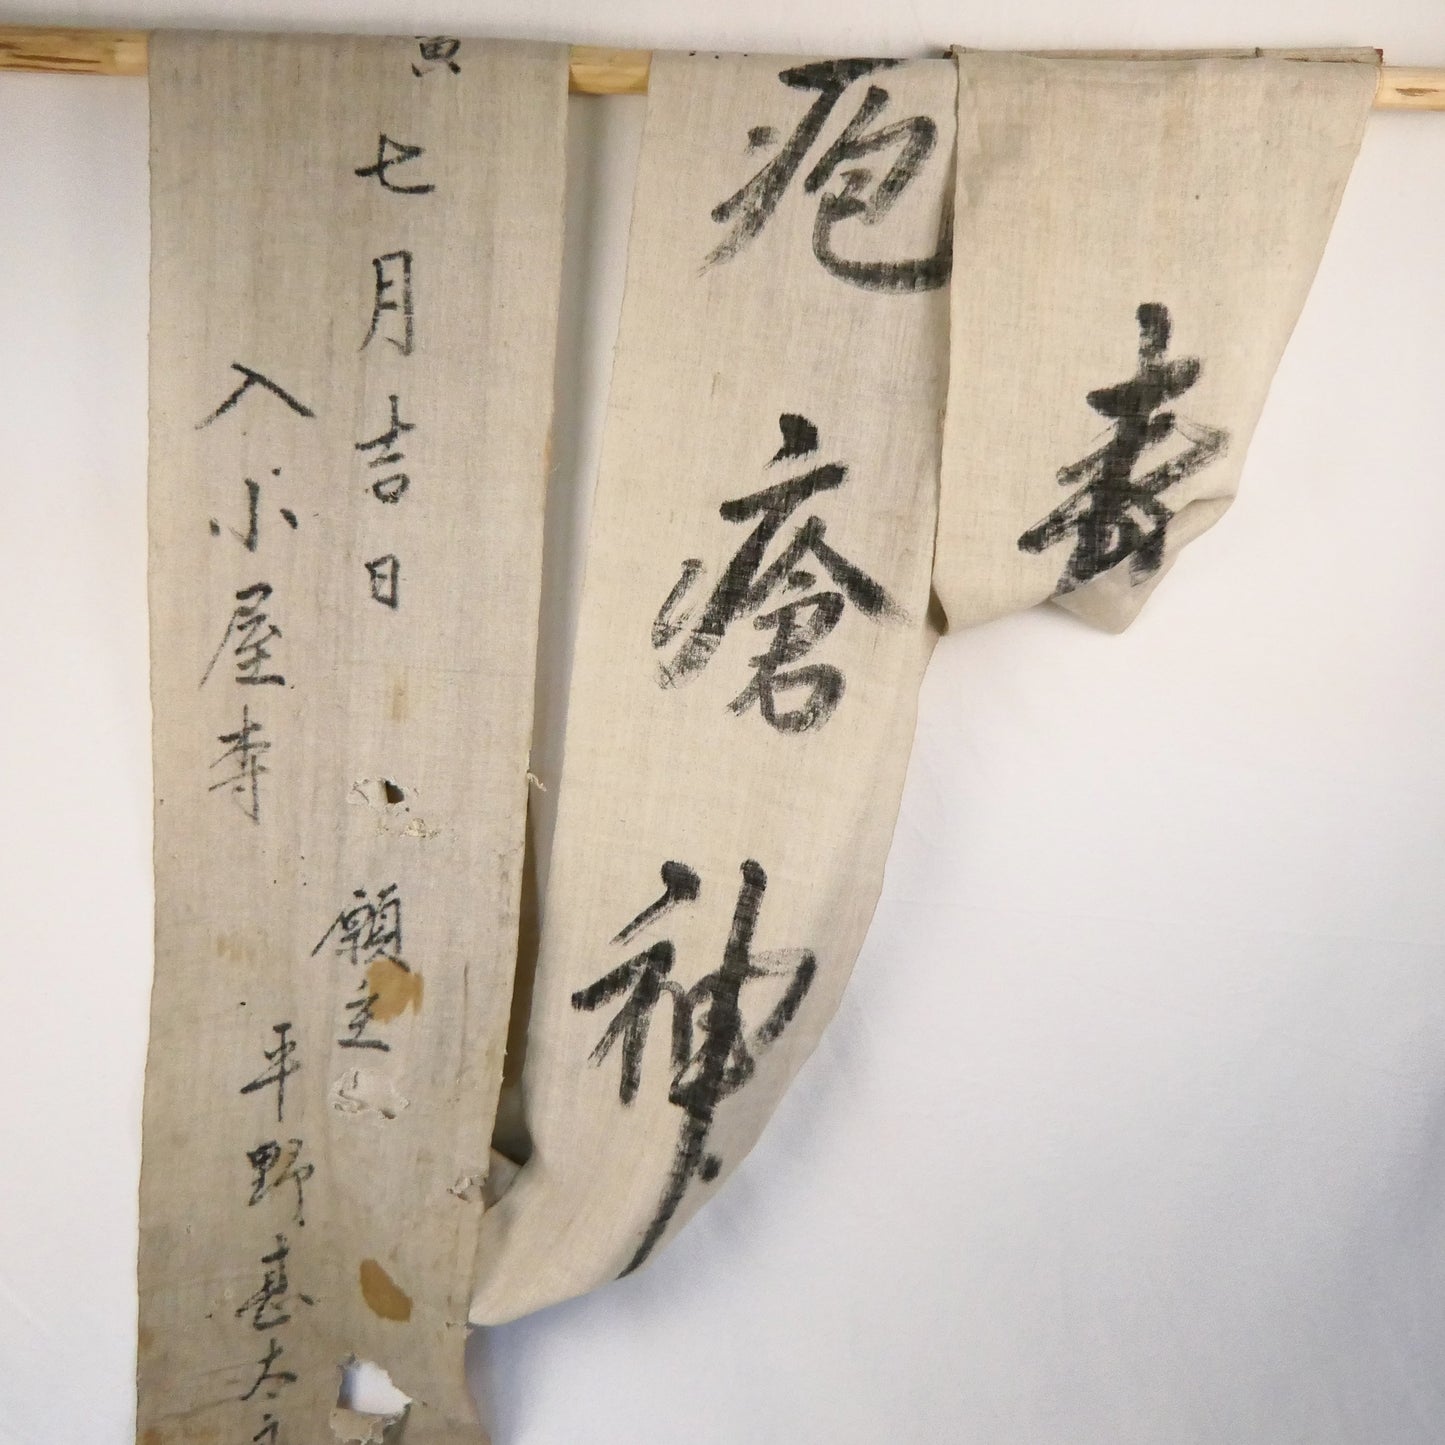 奉
疱瘡神
寅七月吉日 願主
入小屋寺 平野甚太